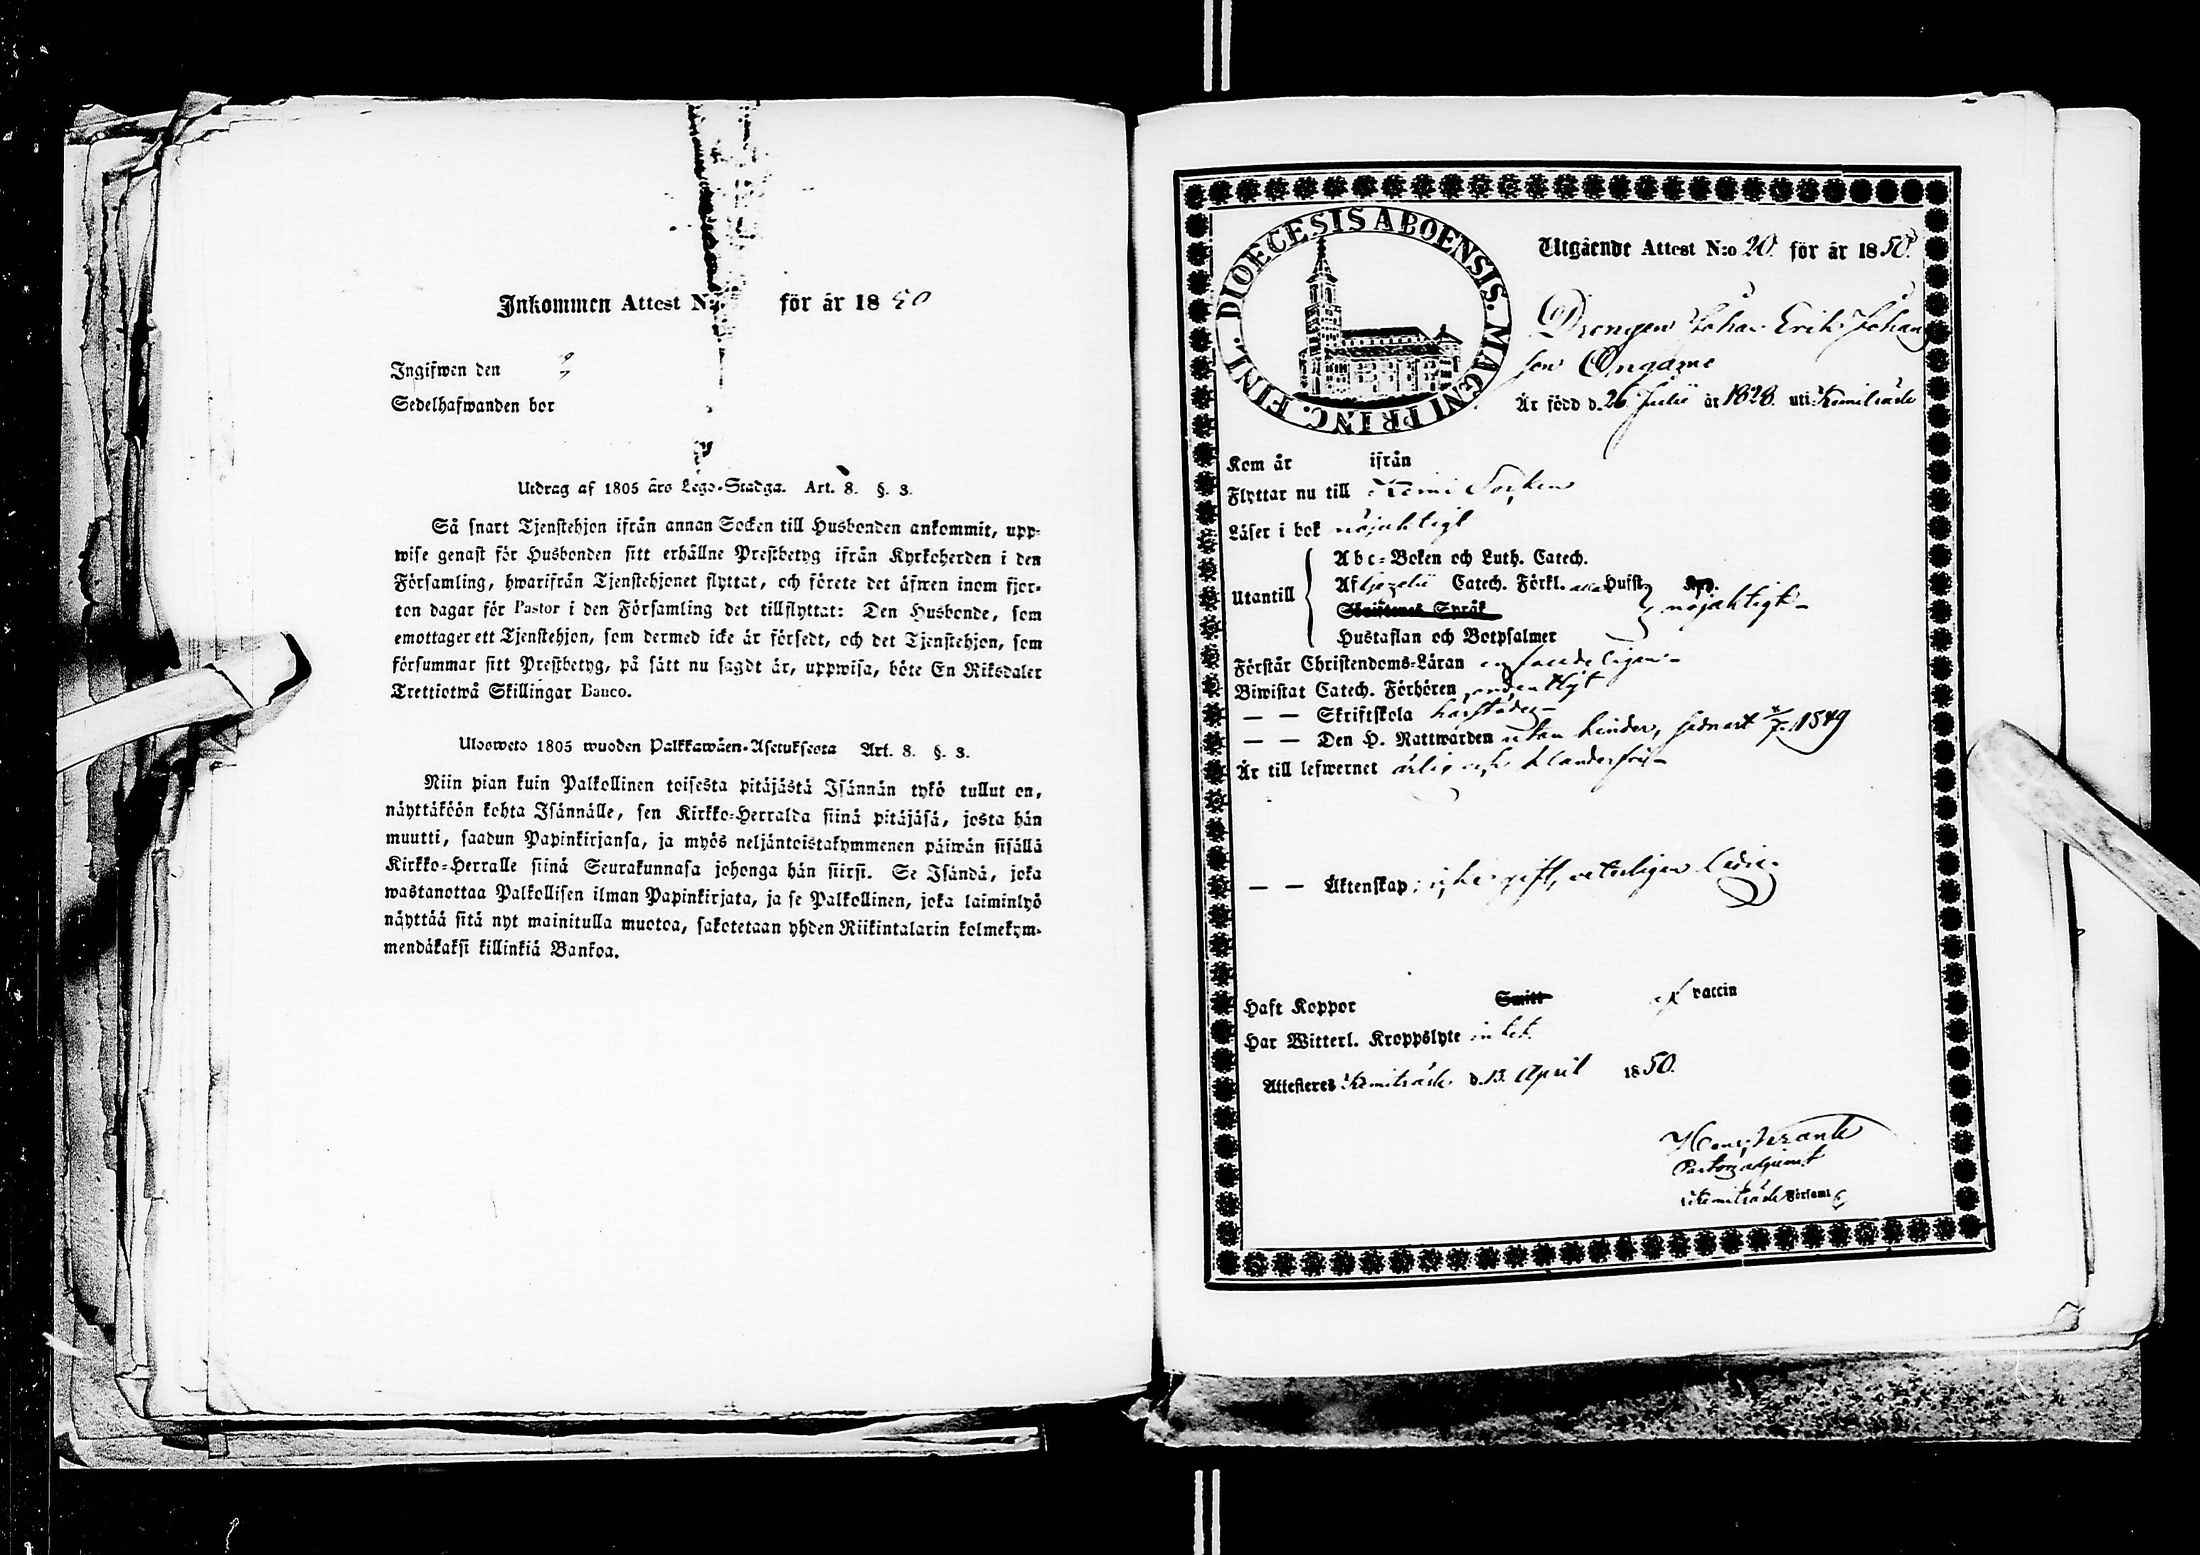 Inkommen Attest N:o för år 1850
Ingifwen den
Sedelhafwanden bor
Utdrag af 1805 års Lego-Stadga. Art. 8. §. 3.
Så snart Tjenstehjon ifrån annan Socken till Husbonden ankommit, upp-
wise genast för Husbonden sitt erhållne Prestbetyg ifrån Kyrkoherden i den
Församling, hwarifrån Tjenstehjonet flyttat, och förete det äfwen inom fjor-
ton dagar för Pastor i den Församling det tillflyttat: Den Husbonde, som
emottager ett Tjenstehjon, som dermed icke är försedt, och det Tjenstehjon, som
försummar sitt Prestbetyg, på sätt nu sagdt är, uppwisa, böte En Riksdaler
Trettiotwå Skillingar Banco.
Ulosweto 1805 wuoden Palkkawäen-Asetuksesta Art. 8. §. 3.
Niin pian kuin Palkollinen toisesta pitäjästä Isännän tykö tullut on,
näyttäköön kohta Isännälle, sen Kirkko-Herralda siinä pitäjäsä, josta hän
muutti, saadun Papinkirjansa, ja myös neljäntoistakymmenen päiwän sisällä
Kirkko-Herralle siinä Seurakunnasa johonga hän siirsi. Se Isändä, joka
wastanottaa Palkollisen ilman Papinkirjata, ja se Palkollinen, joka laiminlyö
näyttää sitä nyt mainitulla muotoa, sakotetaan yhden Riikintalarin kolmekym-
mendäkaksi killinkiä Bankoa.
DIOECESIS ABOENSIS. MAGNI PRINC. FINL.
Utgående Attest N:o 20. för år 1850.
Drengen Johan Erik Johans
son Ongamo
Är född d. 26 Julii år 1828. uti Kemiträsk
Kom år ifrån
Flyttar nu till Kemi Socken
Läser i bok nöjaktigt
Abc-Boken och Luth. Catech.
Utantill Af Catech. Förkl. Husft
Skriftenes Språk nöjaktigt
Hustaflan och Botpsalmer
Förstår Christendoms-Läran
Biwistat Catech. Förhören
— — Skriftskola härstädes
— — Den H. Nattwarden utan hinder, senast 1849
Är till lefwernet ärlig och klanderfri
— — Äktenskap: icke gift, veterligen ledig
Haft Koppor Smitt af vaccin
Har Witterl. Kroppslyte intet.
Attesteres Kemiträsk d. 13. April 1850.
Pastors adjunct
i Kemiträsk Församl.